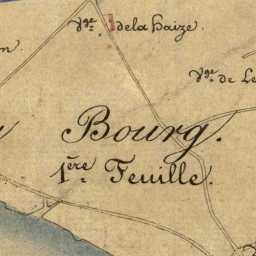 Vge. de la haize.
Vge. de Le
Bourg.
1ère Feuille.